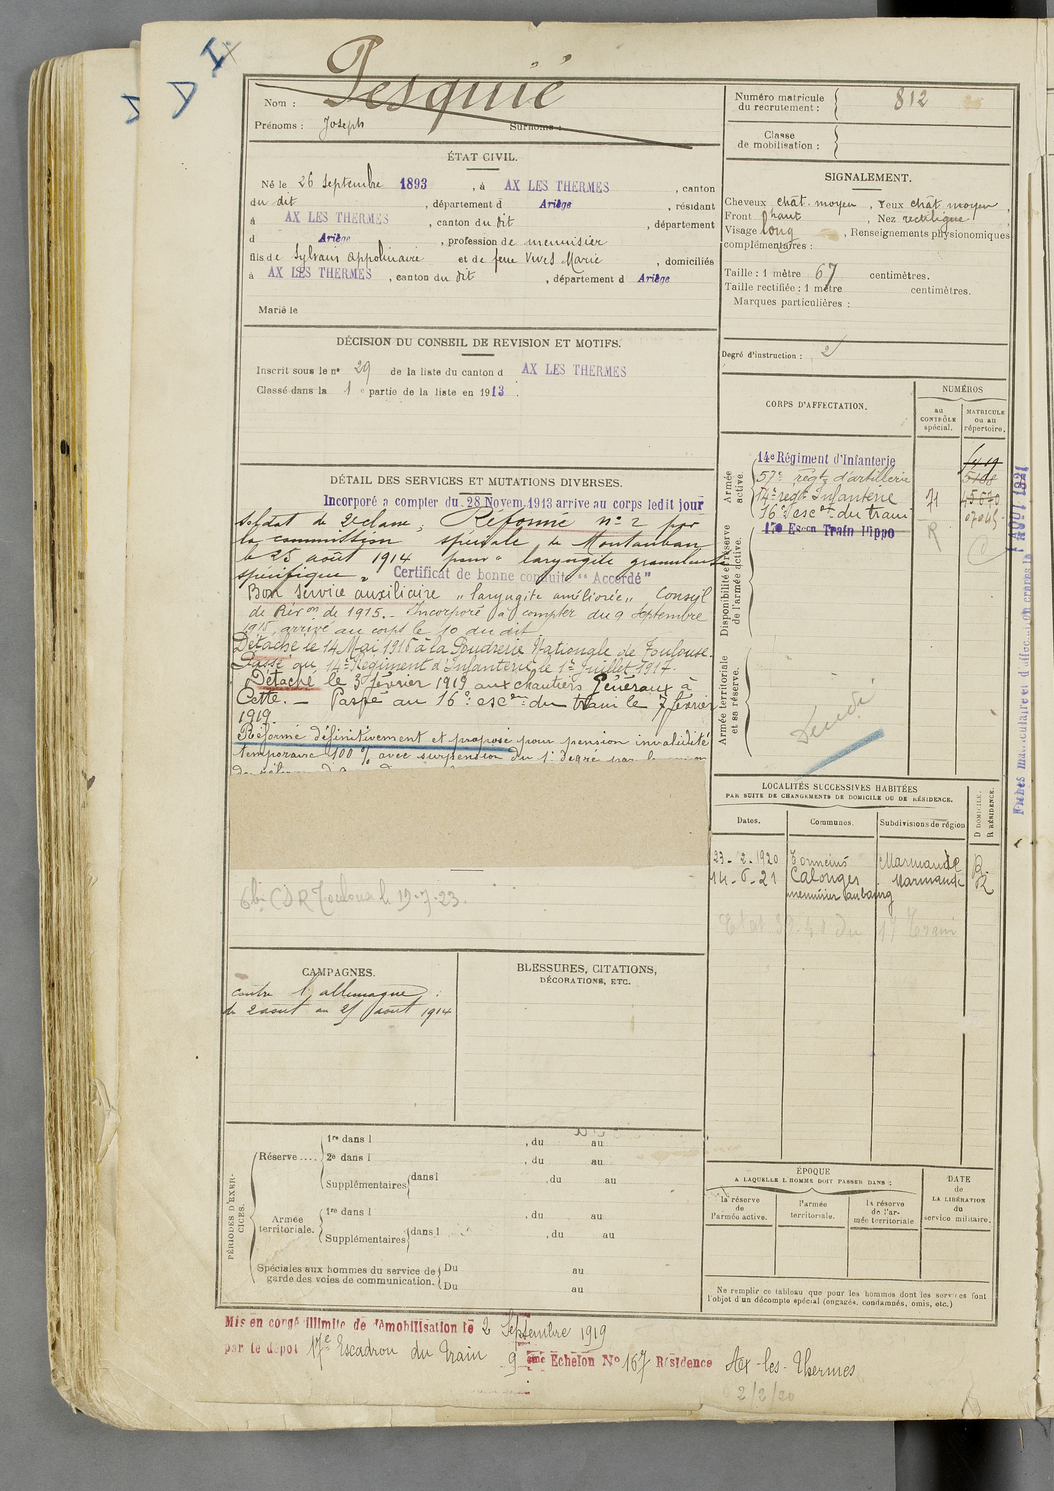 I
D
D
Nom : Pesquié
Prénoms : Joseph Surnoms :
Numéro matricule
du recrutement : 812
Classe
de mobilisation :
ÉTAT CIVIL.
Né le 26 septembre 1893, à AX LES THERMES, canton
du dit, département d Ariège, résidant
à AX LES THERMES, canton du dit, département
d Ariège, profession de menuisier
fils de Sylvain Appolinaire et de feue Vives Marie, domiciliés
à AX LES THERMES, canton du dit, département d Ariège
Marié le
SIGNALEMENT.
Cheveux chât. moyen, Yeux chât moyen,
Front haut, Nez rectiligne
Visage long, Renseignements physionomiques
complémentaires :
Taille : 1 mètre 67 centimètres.
Taille rectifiée : 1 mètre centimètres.
Marques particulières :
Degré d'instruction : 2
DÉCISION DU CONSEIL DE REVISION ET MOTIFS.
Inscrit sous le n° 29 de la liste du canton d AX LES THERMES
Classé dans la 1e partie de la liste en 1913.
CORPS D'AFFECTATION.
NUMÉROS
au
CONTRÔLE
spécial.
MATRICULE
ou au
répertoire.
Armée
active.
14e Régiment d'Infanterie
57e régt d'artillerie
14e régt Infanterie
16e esc on du train
17e Escon Train Hippo
R
Disponibilité et réserve
de l'armée active.
Armée territoriale
et sa réserve.
DÉTAIL DES SERVICES ET MUTATIONS DIVERSES.
Incorporé a compter du 28 Novem. 1913 arrive au corps ledit jour
soldat de 2e classe, Réformé n° 2 par
la commission spéciale de Montauban
le 25 août 1914 pour "laryngite granuleuse
spécifique" Certificat de bonne conduite "Accordé"
Bon service auxiliaire "laryngite améliorée" Conseil
de Réron de 1915.- Incorporé à compter du 9 Septembre
1915, arrivé au corps le 10 du dit
Détaché le 14 Mai 1916 à la Poudrerie Nationale de Toulouse.
Passé au 14e Régiment d'Infanterie le 1er Juillet 1917.
Détaché le 3 février 1919 aux chantiers Généraux à
Cette. — Passé au 16e escon du train le 7 février
1919.
Réformé définitivement et proposé pour pension invalidité
temporaire 100 % avec suspension du 1er degré par la
CDR Toulouse le 19-7-23.
LOCALITÉS SUCCESSIVES HABITÉES
PAR SUITE DE CHANGEMENTS DE DOMICILE OU DE RÉSIDENCE.
Dates.
Communes.
Subdivisions de région
D DOMICILE.
R RÉSIDENCE.
23-2-1920 Tonneins Marmande R
14-6-21 Calonges Marmande R
menuisier au bourg
1 AOUT 1921
CAMPAGNES.
contre l'allemagne :
du 2 août au 25 août 1914
BLESSURES, CITATIONS,
DÉCORATIONS, ETC.
PÉRIODES D'EXER-
CICES.
Réserve ....
1re dans l , du au
2e dans l , du au
Supplémentaires dans l , du au
Armée
territoriale.
1re dans l , du au
Supplémentaires dans l , du au
Spéciales aux hommes du service de
garde des voies de communication.
Du au
Du au
ÉPOQUE
A LAQUELLE L'HOMME DOIT PASSER DANS :
la réserve
de
l'armée active.
l'armée
territoriale.
la réserve
de l'ar-
mée territoriale
DATE
de
LA LIBÉRATION
du
service militaire.
Ne remplir ce tableau que pour les hommes dont les services font
l'objet d'un décompte spécial (engagés, condamnés, omis, etc.)
Mis en congé illimité de démobilisation le 2 Septembre 1919
par le dépôt 17e Escadron du train 9 eme Echelon No 167 Résidence Ax-les-Thermes
2/2/20